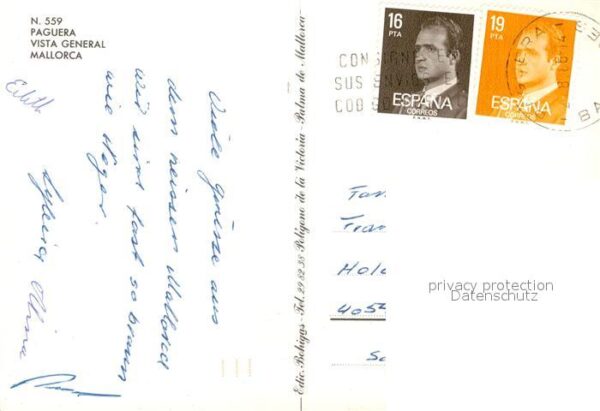 N. 559
PAGUERA
VISTA GENERAL
MALLORCA
Edith
Viele Grüsse aus
dem heissen Mallorca
Wir sind fast so braun
wie Neger.
Sylvia
Edic. Bohigas - Tel. 29 82 38 Polígono de la Victoria - Palma de Mallorca
16
PTA
ESPAÑA
CORREOS
19
PTA
ESPAÑA
CORREOS
CON
SUS ENV
COD
Fam
Fran
Hol
4054
privacy protection
Datenschutz